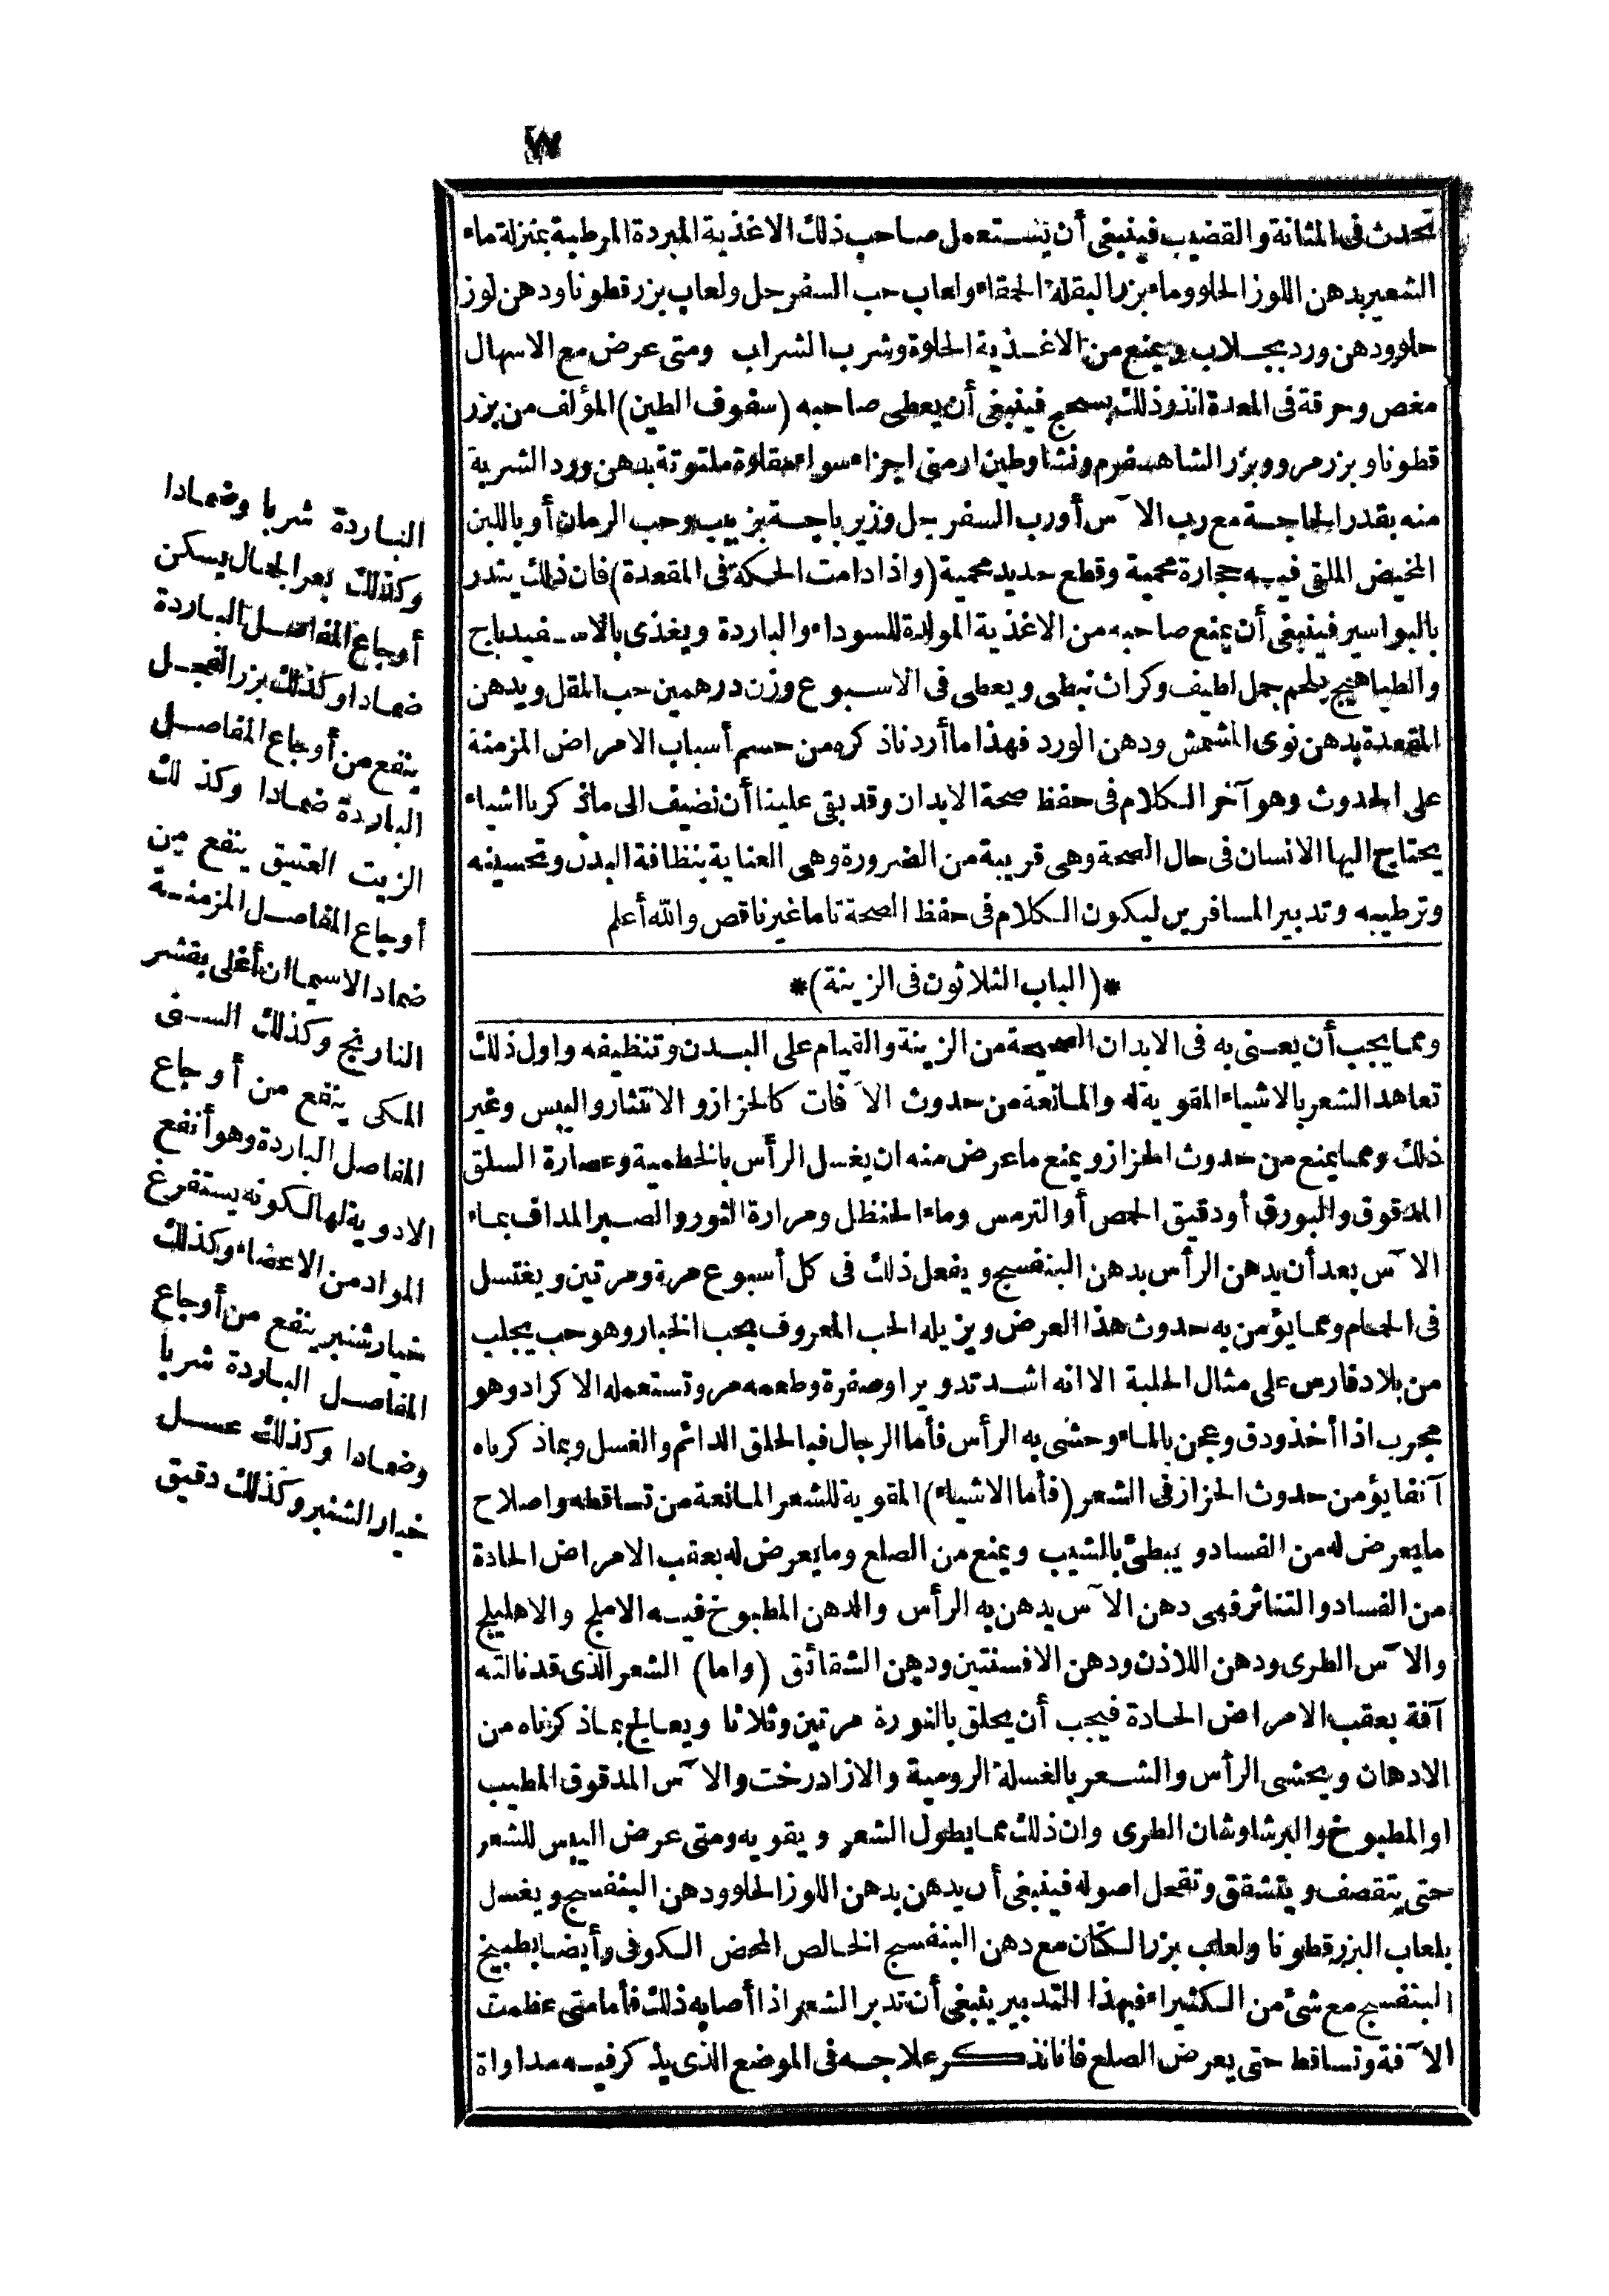 ٧٧
تحدث فى المثانة والقضيب فينبغى أن يستعمل صاحب ذلك الاغذية المبردة المرطبة بمنزلة ماء
الشعير بدهن اللوز الحلو وماء بزر البقلة الحمقاء ولعاب حب السفرجل ولعاب بزر قطونا ودهن لوز
حلو ودهن ورد بجلاب ويمنع من الاغذية الحلوة وشرب الشراب ومتى عرض مع الاسهال
مغص وحرقة فى المعدة انذر ذلك بسحج فينبغى أن يعطى صاحبه (سفوف الطين) المؤلف من بزر
قطونا وبزر مرو وبزر الشاهسفرم ونشا وطين ارمنى اجزاء سواء مقلاوة ملتوتة بدهن ورد الشربة
منه بقدر الحاجة مع رب الآس أو رب السفرجل وزيرباجة بزبيب وحب الرمان أو باللبن
المخيض الملقى فيه حجارة محمية وقطع حديد محمية (واذا دامت الحكة فى المقعدة) فان ذلك ينذر
بالبواسير فينبغى أن يمنع صاحبه من الاغذية المولدة للسوداء والباردة ويغذى بالاسفيدباج
والطباهيج بلحم حمل لطيف وكراث نبطى ويعطى فى الاسبوع وزن درهمين حب المقل ويدهن
المقعدة بدهن نوى المشمش ودهن الورد فهذا ما أردنا ذكره من حسم أسباب الامراض المزمنة
على الحدوث وهو آخر الكلام فى حفظ صحة الابدان وقد بقى علينا أن نضيف الى ما ذكرنا اشياء
يحتاج اليها الانسان فى حال الصحة وهى قريبة من الضرورة وهى العناية بنظافة البدن وتحسينه
وترطيبه وتدبير المسافرين ليكون الكلام فى حفظ الصحة تاما غير ناقص والله أعلم
*(الباب الثلاثون فى الزينة)*
ومما يجب أن يعتنى به فى الابدان الصحيحة من الزينة والقيام على البدن وتنظيفه واول ذلك
تعاهد الشعر بالاشياء المقوية له والمانعة من حدوث الآفات كالحزاز والانتثار واليبس وغير
ذلك ومما يمنع من حدوث الحزاز ويمنع ما عرض منه ان يغسل الرأس بالخطمية وعصارة السلق
المدقوق والبورق أو دقيق الحمص أو الترمس وماء الحنظل ومرارة الثور والصبر المداف بماء
الآس بعد أن يدهن الرأس بدهن البنفسج ويفعل ذلك فى كل أسبوع مرة ومرتين ويغتسل
فى الحمام ومما يؤمن به حدوث هذا العرض ويزيله الحب المعروف بحب الخبار وهو حب يجلب
من بلاد فارس على مثال الحلبة الا انه اشد تدويرا وصفرة وطعمه مر وتستعمله الاكراد وهو
مجرب اذا أخذ ودق وعجن بالماء وحشى به الرأس فأما الرجال فبالحلق الدائم والغسل وبما ذكرناه
آنفا يؤمن حدوث الحزاز فى الشعر (فأما الاشياء) المقوية للشعر المانعة من تساقطه واصلاح
ما يعرض له من الفساد ويبطئ بالشيب ويمنع من الصلع وما يعرض له بعقب الامراض الحادة
من الفساد والتناثر فهى دهن الآس يدهن به الرأس والدهن المطبوخ فيه الاملج والاهليلج
والآس الطرى ودهن اللاذن ودهن الافسنتين ودهن الشقائق (واما) الشعر الذى قد نالته
آفة بعقب الامراض الحادة فيجب أن يحلق بالنورة مرتين وثلاثا ويعالج بما ذكرناه من
الادهان ويحشى الرأس والشعر بالغسلة الرومية والازادرخت والآس المدقوق المطيب
او المطبوخ والبرشاوشان الطرى وان ذلك مما يطول الشعر ويقويه ومتى عرض اليبس للشعر
حتى يتقصف ويتشقق وتقحل اصوله فينبغى أن يدهن بدهن اللوز الحلو ودهن البنفسج ويغسل
بلعاب البزر قطونا ولعاب بزر الكتان مع دهن البنفسج الخالص المحض الكوفى وأيضا بطبيخ
البنفسج مع شئ من الكثيراء فبهذا التدبير ينبغى أن تدبر الشعر اذا أصابه ذلك فأما متى عظمت
الآفة وتساقط حتى يعرض الصلع فانا نذكر علاجه فى الموضع الذى يذكر فيه مداواة
الباردة شربا وضمادا
وكذلك بعر الجمال يسكن
أوجاع المفاصل الباردة
ضمادا وكذلك بزر الفجل
ينفع من أوجاع المفاصل
الباردة ضمادا وكذلك
الزيت العتيق ينفع من
أوجاع المفاصل المزمنة
ضمادا لاسيما ان أغلى بقشر
النارنج وكذلك السنى
المكى ينفع من أوجاع
المفاصل الباردة وهو أنفع
الادوية لها لكونه يستفرغ
المواد من الاعضاء وكذلك
خيار شنبر ينفع من أوجاع
المفاصل الباردة شربا
وضمادا وكذلك عسل
خيار الشنبر وكذلك دقيق